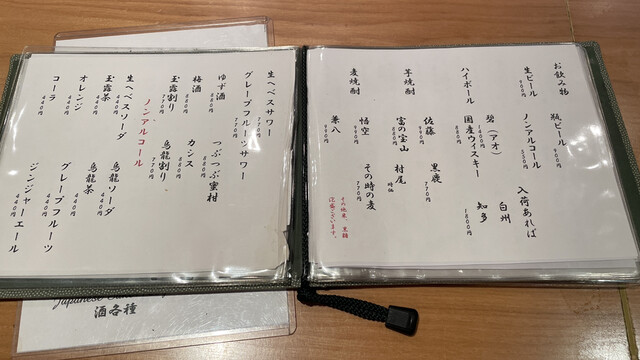 お飲み物
生ビール
990円
瓶ビール
900円
ノンアルコール
550円
ハイボール
碧（アオ）
1400円
国産ウィスキー
880円
入荷あれば
白州
知多
1800円
芋焼酎
佐藤
990円
黒霧
770円
富の宝山
880円
村尾
時価
麦焼酎
悟空
990円
その時の麦
770円
兼八
990円
その他米、黒糖
御座います。
生ヘベスサワー
770円
グレープフルーツサワー
770円
ゆず酒
880円
つぶつぶ蜜柑
880円
梅酒
880円
カシス
880円
玉露割り
770円
烏龍割り
770円
ノンアルコール
生ヘベスソーダ
440円
烏龍ソーダ
440円
玉露茶
440円
烏龍茶
440円
オレンジ
440円
グレープフルーツ
440円
コーラ
440円
ジンジャーエール
440円
Japanese
酒各種